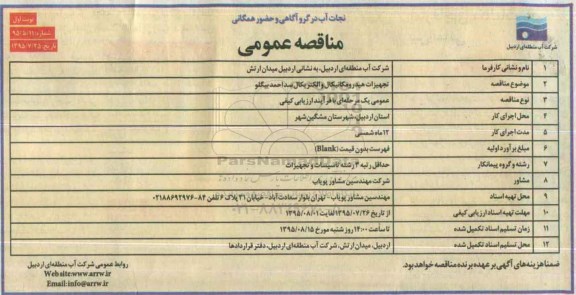 نجات آب در گرو آگاهی و حضور همگانی
نوبت اول
شماره: ۹۵/۵/۱۱
تاریخ: ۱۳۹۵/۷/۲۵
مناقصه عمومی
شرکت آب منطقه‌ای اردبیل
۱ نام و نشانی کارفرما شرکت آب منطقه‌ای اردبیل، به نشانی اردبیل میدان ارتش
۲ موضوع مناقصه تجهیزات هیدرومکانیکال و الکتریکال سد احمد بیگلو
۳ نوع مناقصه عمومی یک مرحله‌ای با فرآیند ارزیابی کیفی
۴ محل اجرای کار استان اردبیل، شهرستان مشگین شهر
۵ مدت اجرای کار ۱۲ ماه شمسی
۶ مبلغ برآورد اولیه فهرست بدون قیمت (Blank)
۷ رشته و گروه پیمانکار حداقل رتبه ۴ رشته تاسیسات و تجهیزات
۸ مشاور شرکت مهندسین مشاور پویاب
۹ محل تهیه اسناد مهندسین مشاور پویاب - تهران بلوار سعادت آباد - خیابان ۳۱ پلاک ۶ تلفن ۸۴-۰۲۱۸۸۶۹۲۹۷۶
۱۰ مهلت تهیه اسناد ارزیابی کیفی از تاریخ ۱۳۹۵/۰۷/۲۶ لغایت ۱۳۹۵/۰۸/۰۱
۱۱ زمان تسلیم اسناد تکمیل شده تا ساعت ۱۴:۰۰ روز شنبه مورخ ۱۳۹۵/۰۸/۱۵
۱۲ محل تسلیم اسناد تکمیل شده اردبیل، میدان ارتش، شرکت آب منطقه‌ای اردبیل، دفتر قراردادها
ضمنا هزینه‌های آگهی بر عهده برنده مناقصه خواهد بود.
روابط عمومی شرکت آب منطقه‌ای اردبیل
Website:www.arrw.ir
Email:info@arrw.ir